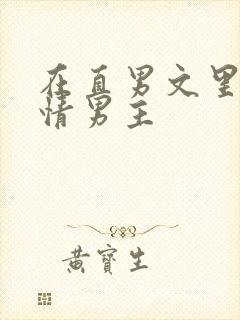 在直男文里
情男主
黄宝生